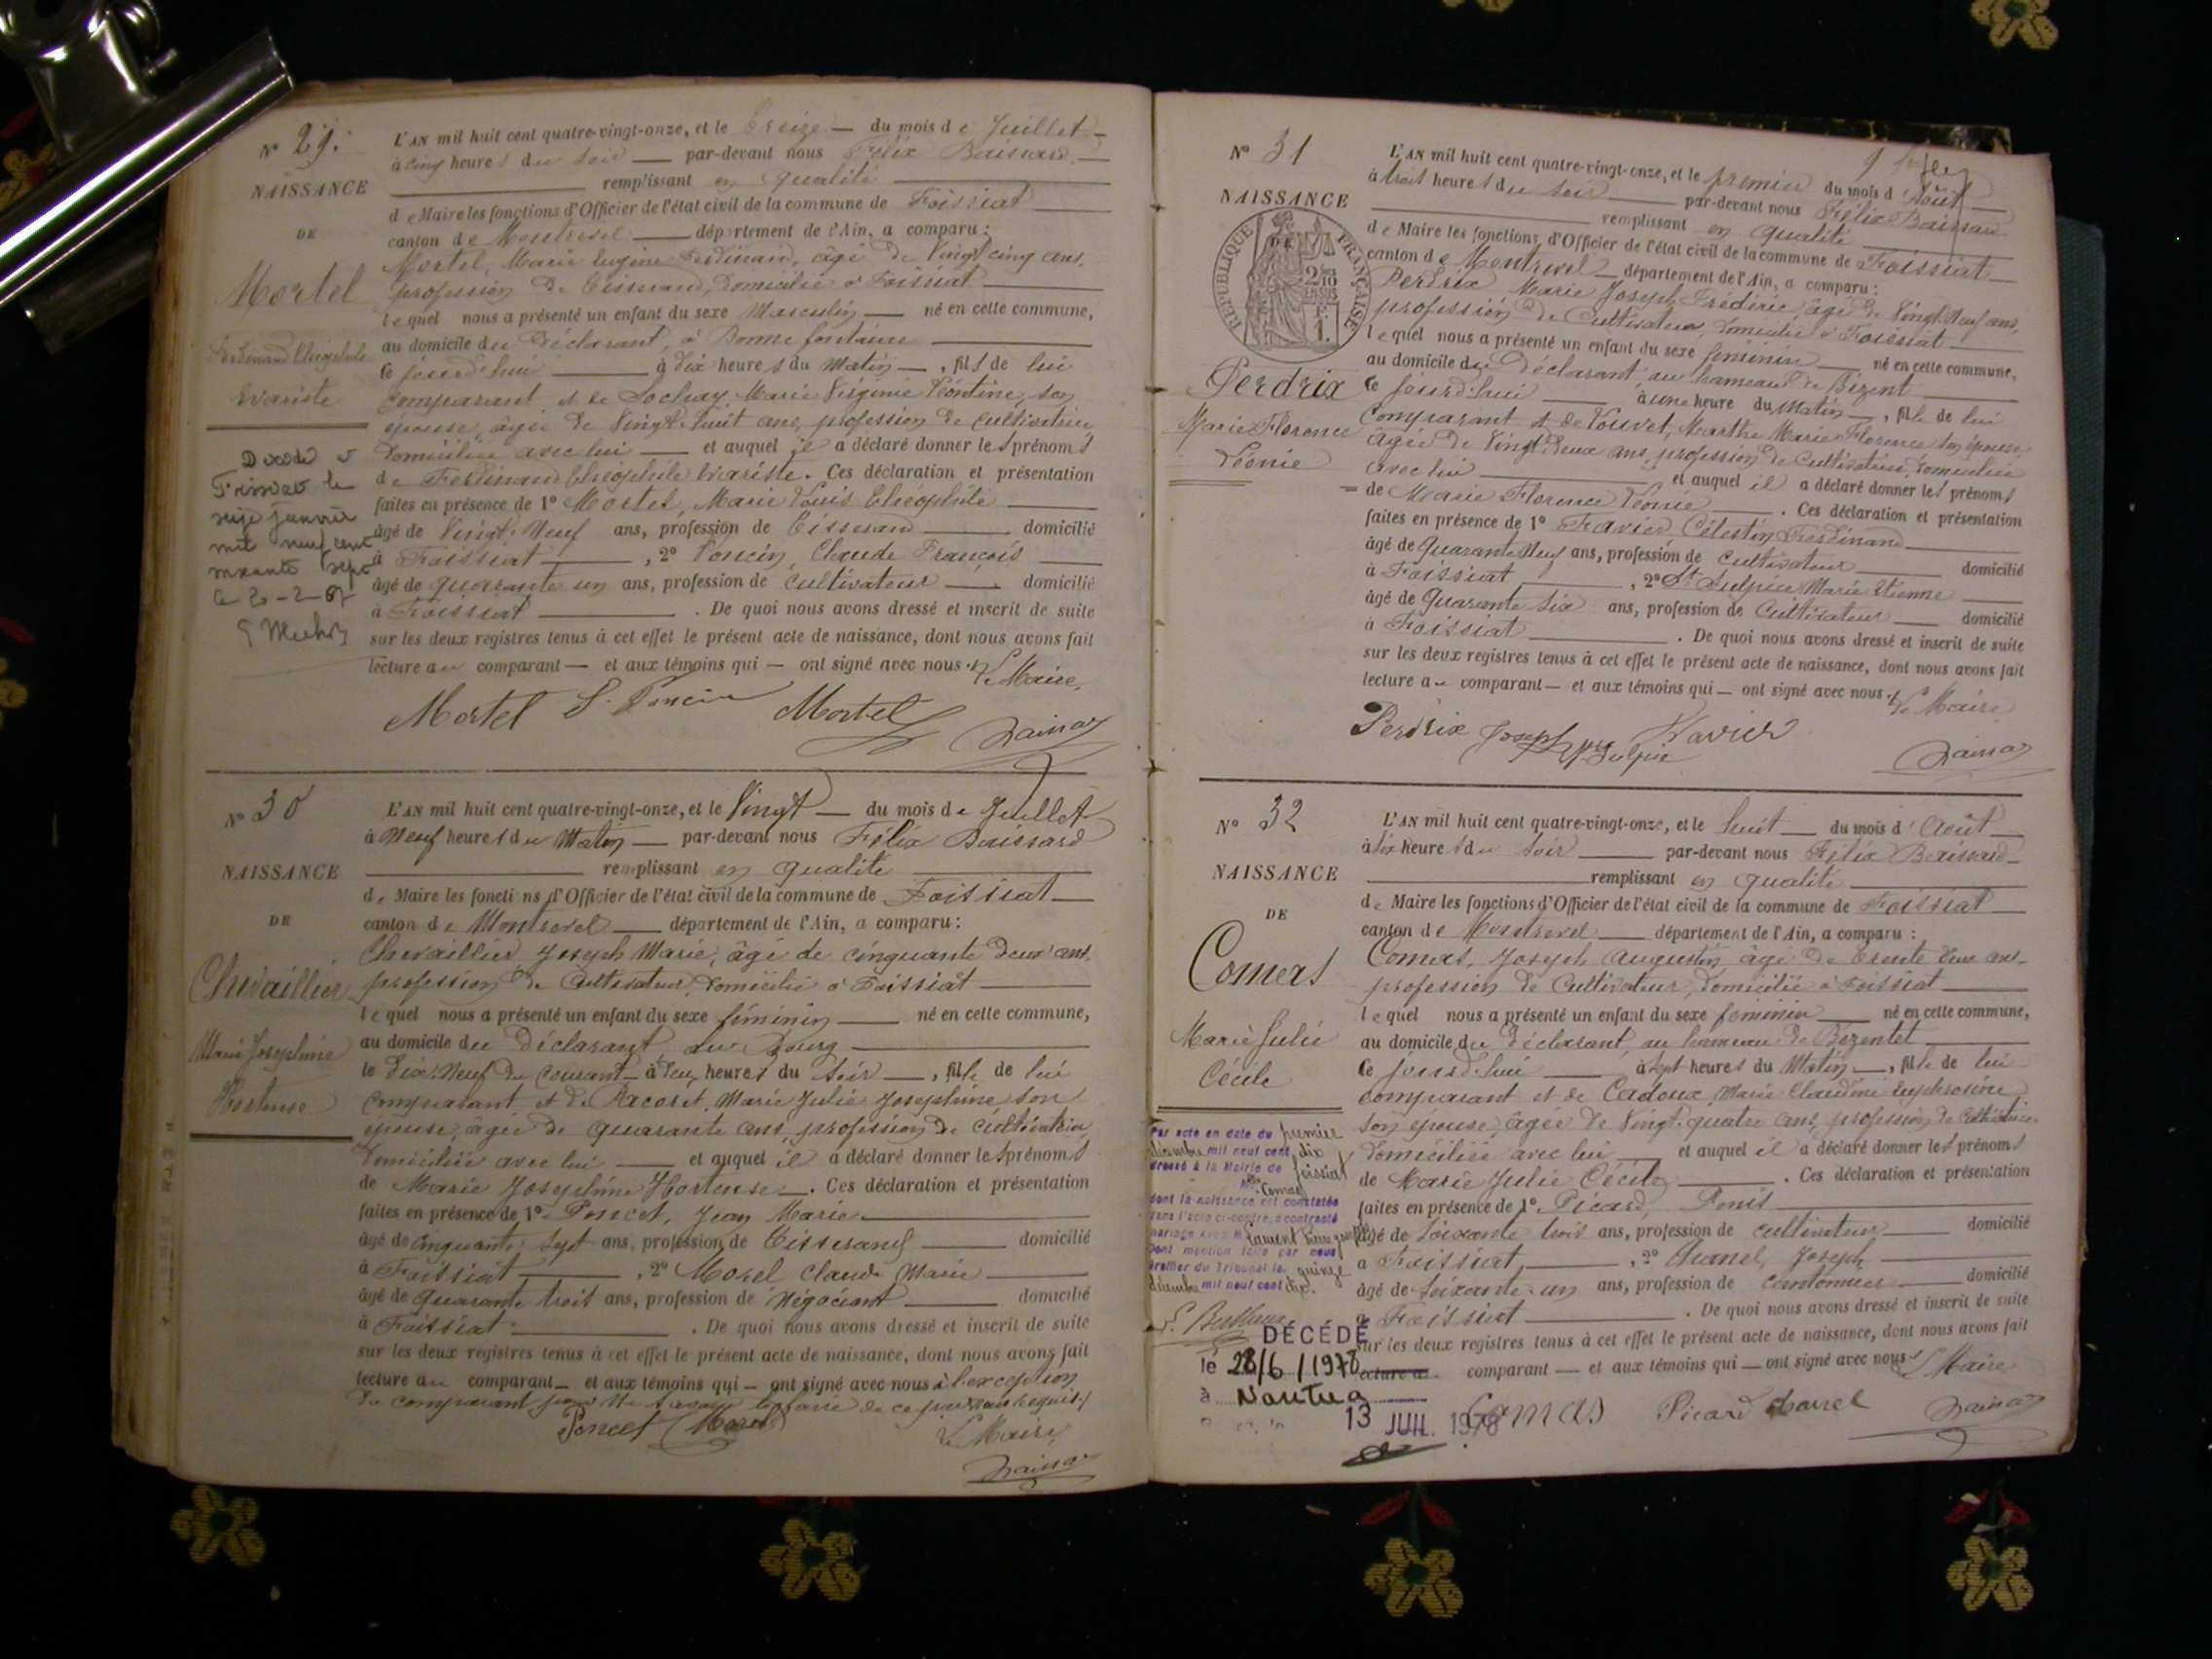 N° 29.
NAISSANCE
DE
Mortel
Ferdinand Théophile
Evariste
Décédé à
Foissiat le
seize janvier
mil neuf cent
soixante sept
le 20-2-67
L'AN mil huit cent quatre-vingt-onze, et le treize — du mois de Juillet —
à cinq heures du soir — par-devant nous Félix Baissard —
remplissant en qualité
de Maire les fonctions d'Officier de l'état civil de la commune de Foissiat
canton de Montrevel — département de l'Ain, a comparu :
Mortel, Marie Eugène Ferdinand, âgé de Vingt cinq ans,
profession de Tisserand, domicilié à Foissiat
lequel nous a présenté un enfant du sexe Masculin — né en cette commune,
au domicile du Déclarant, à Bonne fontaine
ce jourd'hui — à dix heures du Matin —, fils de lui
Comparant et de Sochay Marie Virginie Léontine, son
épouse, âgée de Vingt-huit ans, profession de cultivatrice
domiciliée avec lui — et auquel il a déclaré donner les prénoms
de Ferdinand Théophile Evariste. Ces déclaration et présentation
faites en présence de 1° Mortel, Marie Louis Théophile
âgé de Vingt-Neuf ans, profession de Tisserand — domicilié
à Foissiat —, 2° Poncin, Claude François
âgé de quarante un ans, profession de Cultivateur — domicilié
à Foissiat — . De quoi nous avons dressé et inscrit de suite
sur les deux registres tenus à cet effet le présent acte de naissance, dont nous avons fait
lecture au comparant — et aux témoins qui — ont signé avec nous. Le Maire,
Mortel Poncin Mortel
N° 30
NAISSANCE
DE
Chevaillier
Marie Josephine
Hortense
L'AN mil huit cent quatre-vingt-onze, et le Vingt — du mois de Juillet
à Neuf heures du Matin — par-devant nous Félix Baissard
remplissant en qualité
de Maire les fonctions d'Officier de l'état civil de la commune de Foissiat —
canton de Montrevel — département de l'Ain, a comparu :
Chevaillier Joseph Marie, âgé de cinquante deux ans,
profession de Cultivateur, domicilié à Foissiat
lequel nous a présenté un enfant du sexe féminin — né en cette commune,
au domicile du Déclarant, au Bourg
le dix-Neuf du Courant — à deux heures du soir —, fille de lui
Comparant et de Marie Julie Josephine son
épouse, âgée de quarante ans, profession de Cultivatrice
domiciliée avec lui — et auquel il a déclaré donner les prénoms
de Marie Josephine Hortense —. Ces déclaration et présentation
faites en présence de 1° Poncet, Jean Marie
âgé de cinquante sept ans, profession de Tisserand — domicilié
à Foissiat —, 2° Morel Claude Marie
âgé de quarante trois ans, profession de Négociant — domicilié
à Foissiat — . De quoi nous avons dressé et inscrit de suite
sur les deux registres tenus à cet effet le présent acte de naissance, dont nous avons fait
lecture au comparant — et aux témoins qui — ont signé avec nous à l'exception
du comparant pour ne savoir le faire de ce par nous requis.
Poncet Morel Le Maire
N° 31
NAISSANCE
DE
RÉPUBLIQUE FRANÇAISE
Perdrix
Marie Florence
Léonie
L'AN mil huit cent quatre-vingt-onze, et le premier du mois d'Août
à trois heures du soir — par-devant nous Félix Baissard
remplissant en qualité
de Maire les fonctions d'Officier de l'état civil de la commune de Foissiat
canton de Montrevel — département de l'Ain, a comparu :
Perdrix Marie Joseph Frédéric, âgé de Vingt-Neuf ans,
profession de Cultivateur, domicilié à Foissiat
lequel nous a présenté un enfant du sexe féminin — né en cette commune,
au domicile du Déclarant, au hameau de
ce jourd'hui — à une heure du Matin —, fille de lui
Comparant et de Vouvet, Marthe Marie Florence son épouse,
âgée de Vingt-deux ans, profession de Cultivatrice, domiciliée
avec lui — et auquel il a déclaré donner les prénoms
de Marie Florence Léonie — . Ces déclaration et présentation
faites en présence de 1° Favier Célestin Ferdinand
âgé de Quarante Neuf ans, profession de Cultivateur — domicilié
à Foissiat —, 2° St Sulpice Marie Etienne
âgé de Quarante Six ans, profession de Cultivateur — domicilié
à Foissiat — . De quoi nous avons dressé et inscrit de suite
sur les deux registres tenus à cet effet le présent acte de naissance, dont nous avons fait
lecture au comparant — et aux témoins qui — ont signé avec nous. Le Maire
Perdrix Joseph St Sulpice Favier
N° 32
NAISSANCE
DE
Comas
Marie Julie
Cécile
Par acte en date du premier
décembre mil neuf cent dix
dressé à la Mairie de foissiat
Comas
dont la naissance est constatée
dans l'acte ci-contre, a contracté
mariage avec M Laurent
Dont mention faite par nous
Greffier du Tribunal le quinze
décembre mil neuf cent dix.
DÉCÉDÉ
le 28/6/1978
à Nantua
13 JUIL. 1978
L'AN mil huit cent quatre-vingt-onze, et le huit — du mois d'Août —
à six heures du soir — par-devant nous Félix Baissard
remplissant en qualité
de Maire les fonctions d'Officier de l'état civil de la commune de Foissiat
canton de Montrevel — département de l'Ain, a comparu :
Comas, Joseph Augustin, âgé de trente deux ans,
profession de Cultivateur, domicilié à Foissiat
lequel nous a présenté un enfant du sexe féminin — né en cette commune,
au domicile du déclarant, au hameau de Bézentet
ce jourd'hui — à sept heures du Matin —, fille de lui
comparant et de Cadoux, Marie Claudine Euphrosine
son épouse âgée de Vingt-quatre ans, profession de Cultivatrice
domiciliée avec lui — et auquel il a déclaré donner les prénoms
de Marie Julie Cécile — . Ces déclaration et présentation
faites en présence de 1° Picard, Denis
âgé de Soixante trois ans, profession de cultivateur — domicilié
à Foissiat —, 2° Chanel, Joseph
âgé de Soixante-un ans, profession de Cantonnier — domicilié
à Foissiat — . De quoi nous avons dressé et inscrit de suite
sur les deux registres tenus à cet effet le présent acte de naissance, dont nous avons fait
lecture au comparant — et aux témoins qui — ont signé avec nous. Le Maire
Comas Picard Chanel